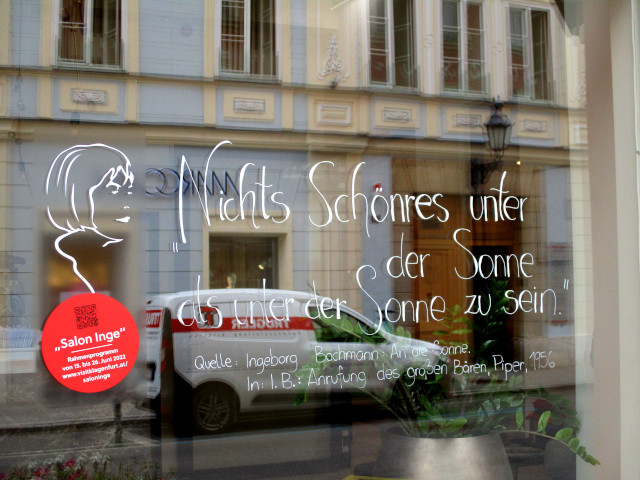 „Nichts Schönres unter
der Sonne
als unter der Sonne zu sein."
Quelle: Ingeborg Bachmann: An die Sonne.
In: I.B.: Anrufung des großen Bären, Piper, 1956
„Salon Inge“
Rahmenprogramm
von 15. bis 26. Juni 2022
www.visitklagenfurt.at/
saloninge